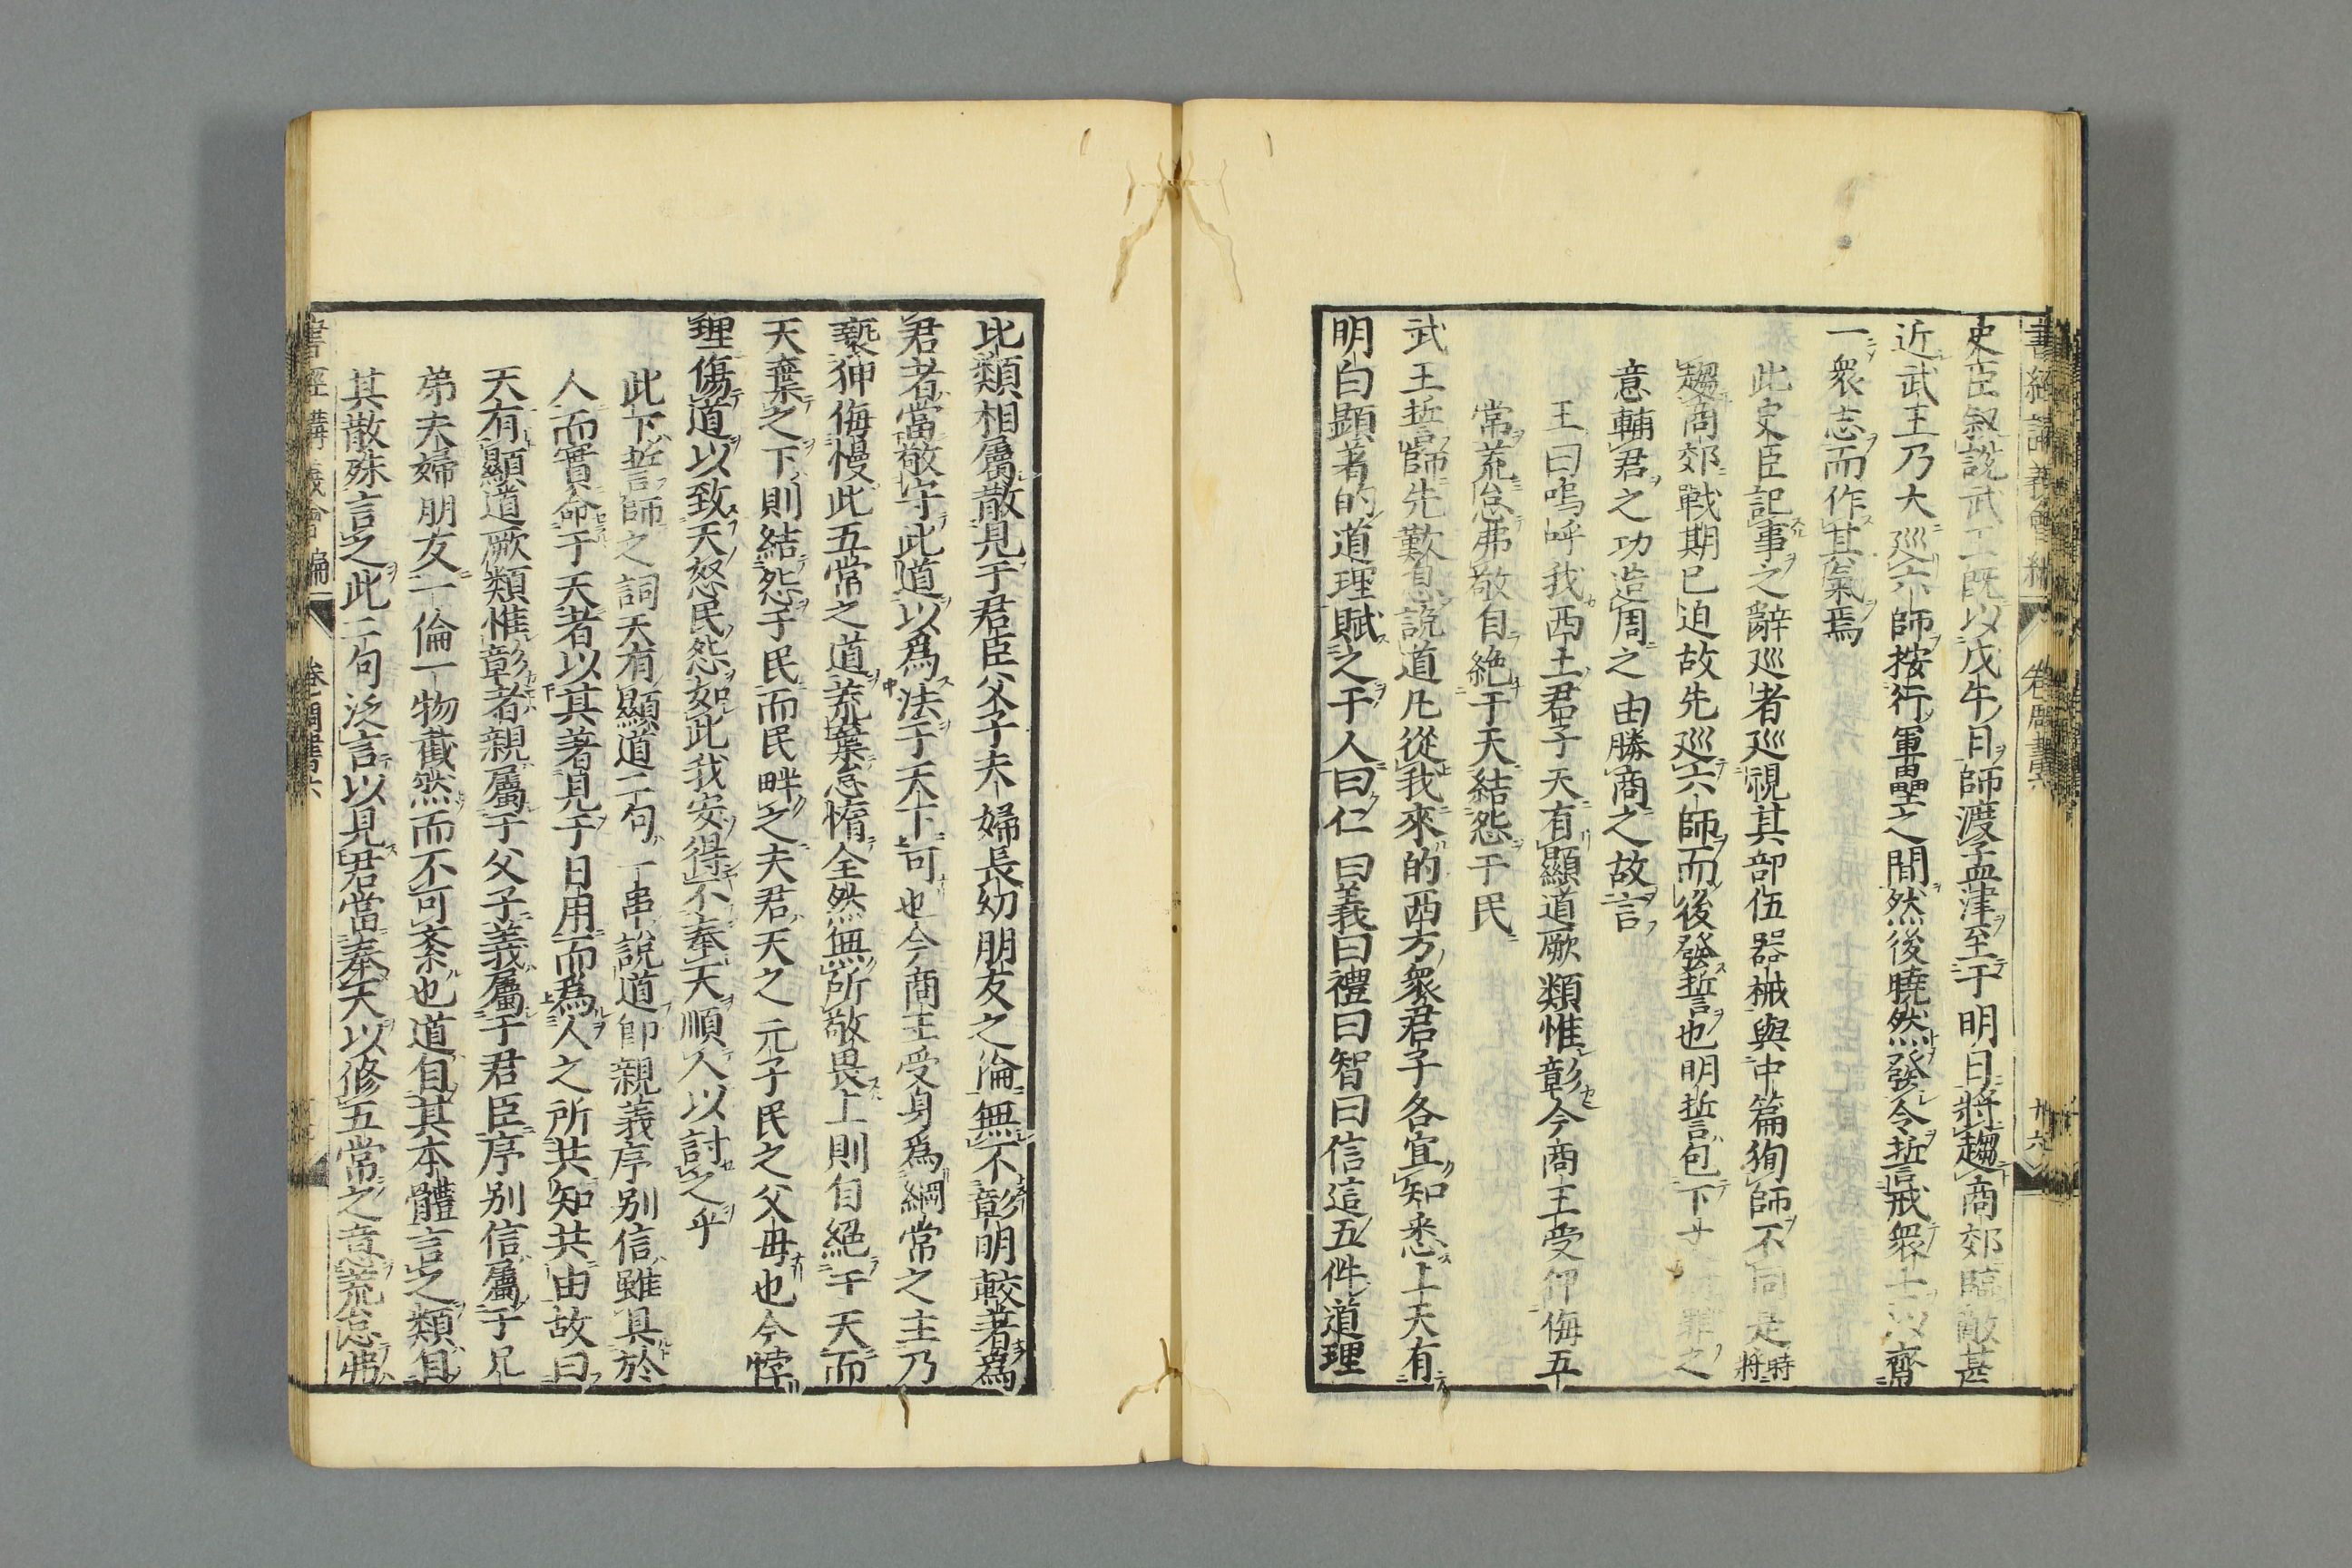 書經講義會編 卷 周書 六 廿六
史臣叙說武王既以戊午日師渡孟津至于明日將趨商郊臨敵甚
近武王乃大巡六師按行軍壘之間然後曉然發令誓戒衆士以齊
一衆志而作其氣焉
此史臣記事之辭巡者巡視其部伍器械與中篇狥師不同是時將
趨商郊戰期已迫故先巡六師而後發誓也明誓包下 罪之
意輔君之功造周之由勝商之故言
王曰嗚呼我西土君子天有顯道厥類惟彰今商王受狎侮五
常荒怠弗敬自絶于天結怨于民
武王誓師先歎息說道凡從我來的西方衆君子各宜知悉上天有
明白顯著的道理賦之于人曰仁曰義曰禮曰智曰信這五件道理
比類相屬散見于君臣父子夫婦長幼朋友之倫無不彰明較著爲
君者當敬守此道以爲法于天下可也今商王受身爲綱常之主乃
褻狎侮慢此五常之道荒棄怠惰全然無所敬畏上則自絕于天而
天棄之下則結怨于民而民畔之夫君天之元子民之父毋也今悖
理傷道以致天怒民怨如此我安得不奉天順人以討之乎
此下誓師之詞天有顯道二句一串說道卽親義序别信雖具於
人而實命于天者以其著見于日用而爲人之所共知共由故曰
天有顯道厥類惟彰者親屬于父子義屬于君臣序别信屬于兄
弟夫婦朋友一倫一物截然而不可紊也道自其本體言之類自
其散殊言之此二句泛言以見君當奉天以修五常之意荒怠弗
書經講義會編 卷七 周書 六